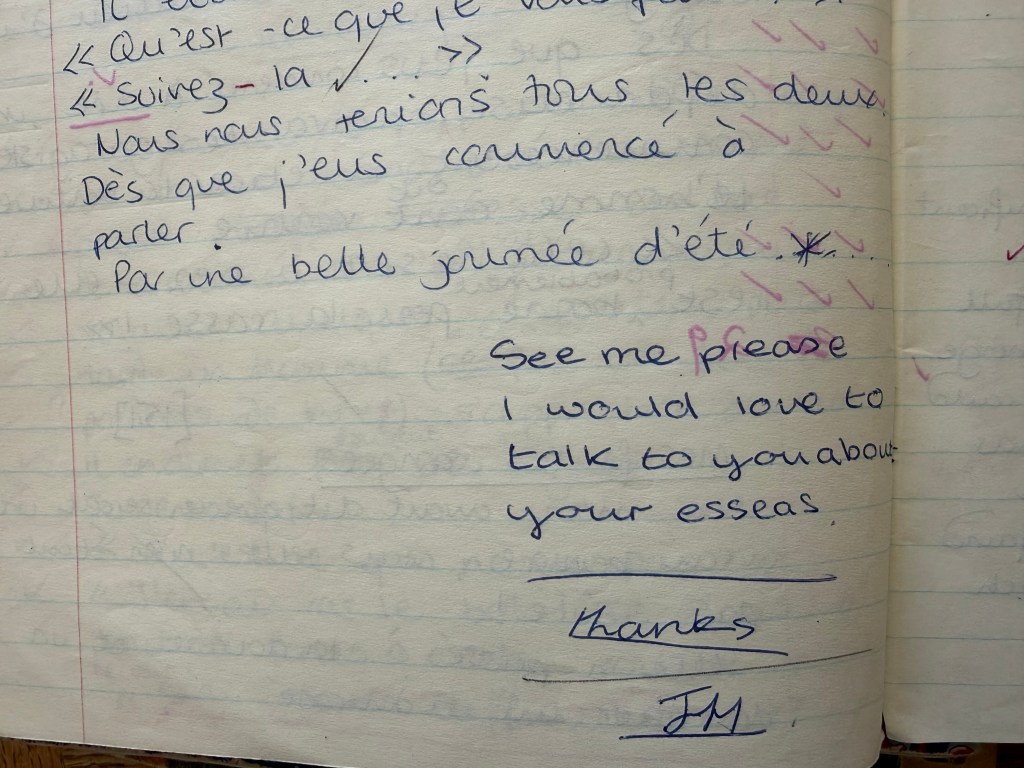 « Qu'est-ce que je vous
« Suivez-la .... »
Nous nous tenions tous les deux
Dès que j'eus commencé à
parler.
Par une belle journée d'été....
See me please
I would love to
talk to you about
your esseas.
thanks
JM